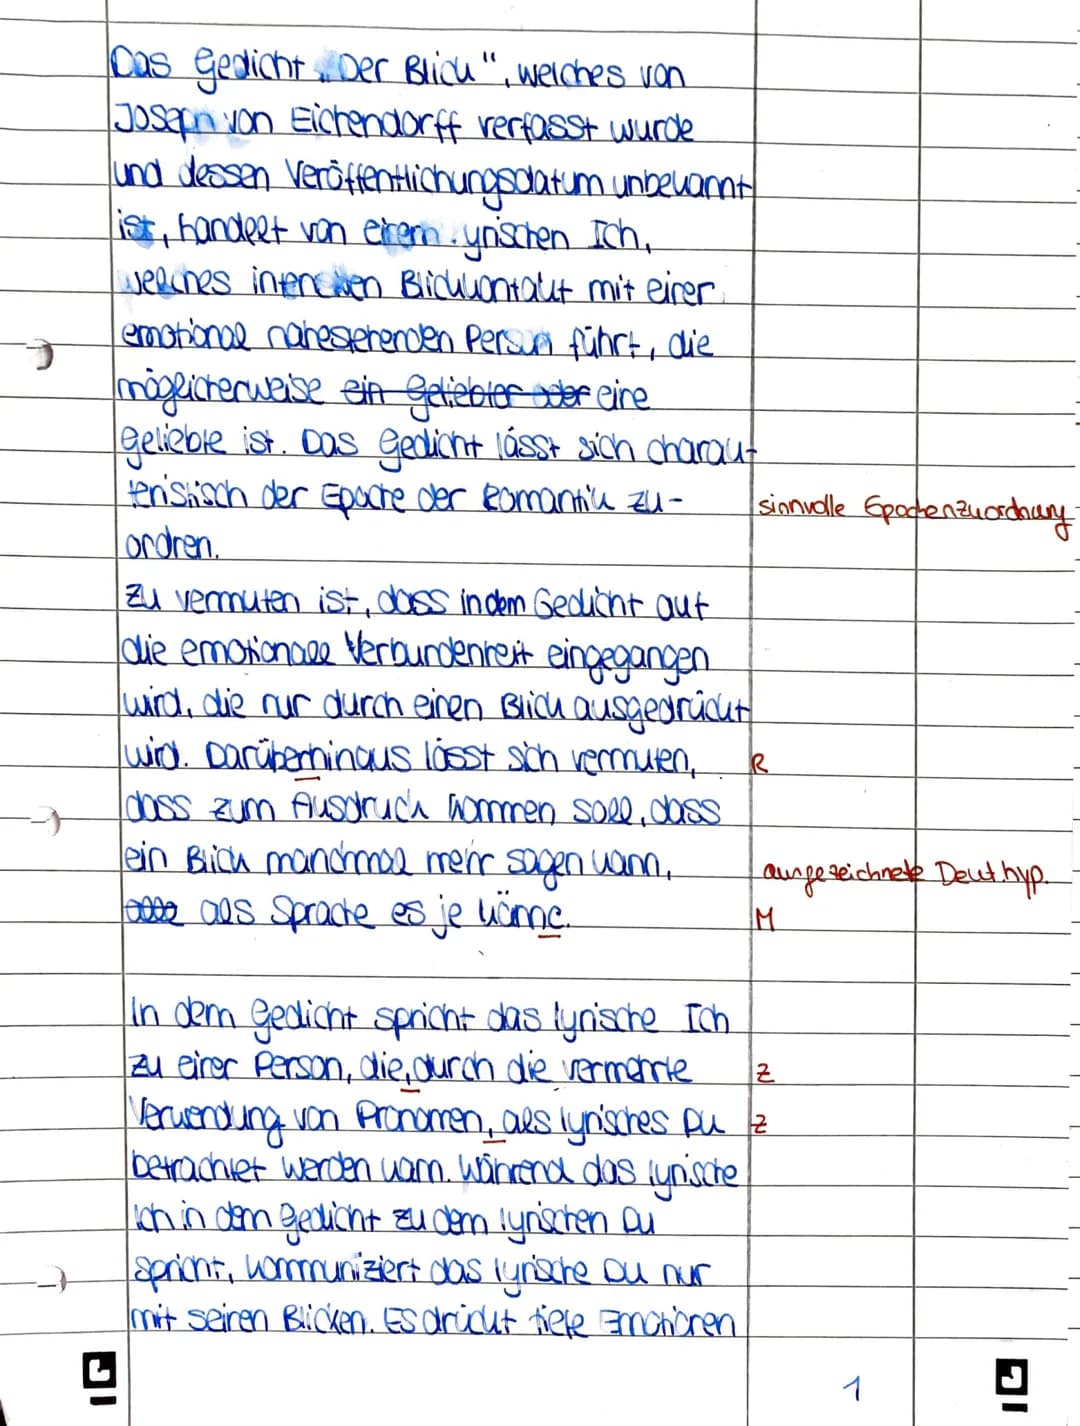 Das Gedicht „Der Blick", welches von
Joseph von Eichendorff verfasst wurde
und dessen Veröffentlichungsdatum unbekannt
ist, handelt von einem lyrischen Ich,
welches intensiven Blickkontakt mit einer
emotional nahestehenden Person führt, die
möglicherweise ein Geliebter oder eine
Geliebte ist. Das Gedicht lässt sich charak-
teristisch der Epoche der Romantik zu-
sinnvolle Epochenzuordnung
ordnen.
Zu vermuten ist, dass in dem Gedicht auf
die emotionale Verbundenheit eingegangen
wird, die nur durch einen Blick ausgedrückt
wird. Darüberhinaus lässt sich vermuten, R
dass zum Ausdruck kommen soll, dass
ein Blick manchmal mehr sagen kann,
ausgezeichnete Deut.hyp.
als Sprache es je könne. M
In dem Gedicht spricht das lyrische Ich
zu einer Person, die, durch die vermehrte Z
Verwendung von Pronomen, als lyrisches Du Z
betrachtet werden kann. Während das lyrische
Ich in dem Gedicht zu dem lyrischen Du
spricht, kommuniziert das lyrische Du nur
mit seinen Blicken. Es drückt tiefe Emotionen
1